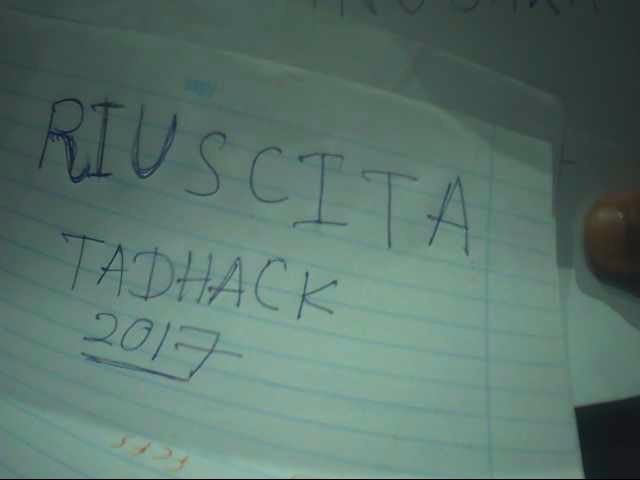 RIUSCITA
TADHACK
2017